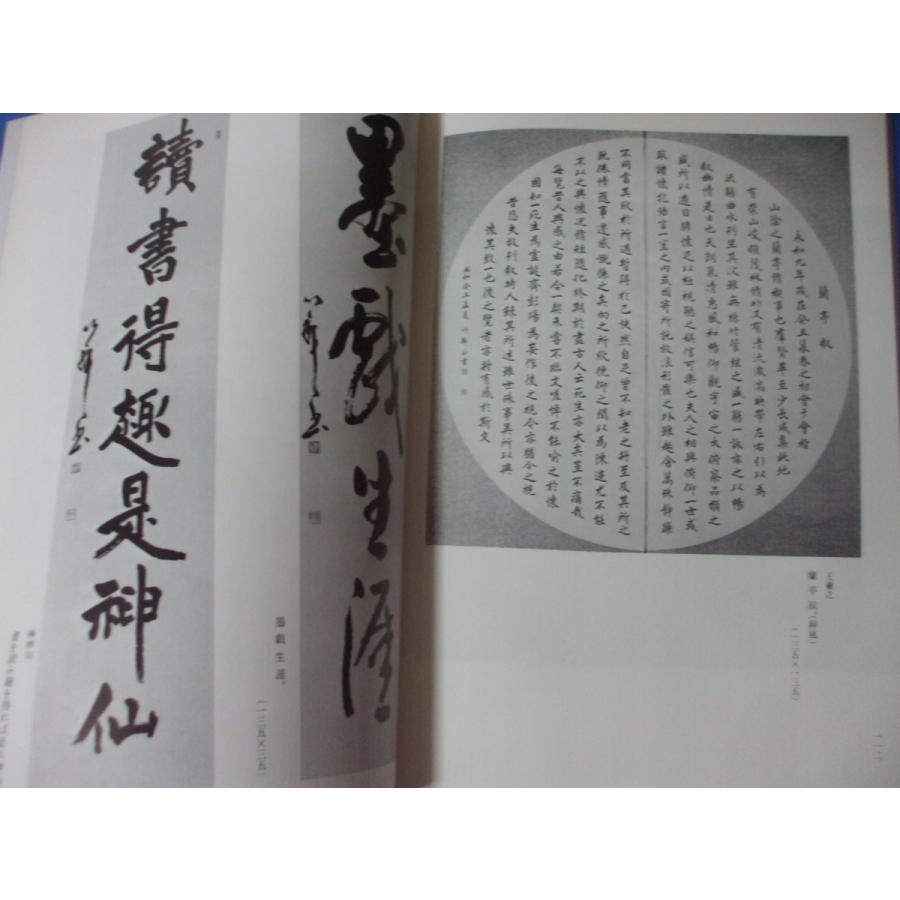 蘭亭叙
永和九年歳在癸丑暮春之初會于會稽
山陰之蘭亭脩稧事也群賢畢至少長咸集此地
有崇山峻領茂林脩竹又有清流激湍映帶左右引以為
流觴曲水列坐其次雖無絲竹管弦之盛一觴一詠亦足以暢
叙幽情是日也天朗氣清惠風和暢仰觀宇宙之大俯察品類之
盛所以遊目騁懷足以極視聽之娯信可樂也夫人之相與俯仰一世或
取諸懷抱悟言一室之內或因寄所託放浪形骸之外雖趣舍萬殊靜躁
不同當其欣於所遇暫得於己快然自足曽不知老之将至及其所之
既惓情随事遷感慨係之矣向之所欣俛仰之閒以為陳迹尤不能
不以之興懷況脩短随化終期於盡古人云死生亦大矣豈不痛哉
每覽昔人興感之由若合一契未嘗不臨文嗟悼不能喻之於懷
固知一死生為虚誕齊彭殤為妄作後之視今亦猶今之視
昔悲夫故列叙時人録其所述雖世殊事異所以興
懷其致一也後之覽者亦将有感於斯文
王羲之
蘭亭叙(屏風)
(一三五×一三五)
一一
墨戯生涯
墨戯生涯。
(一三五×三五)
讀書得趣是神仙
書を読み趣を得れば是れ神